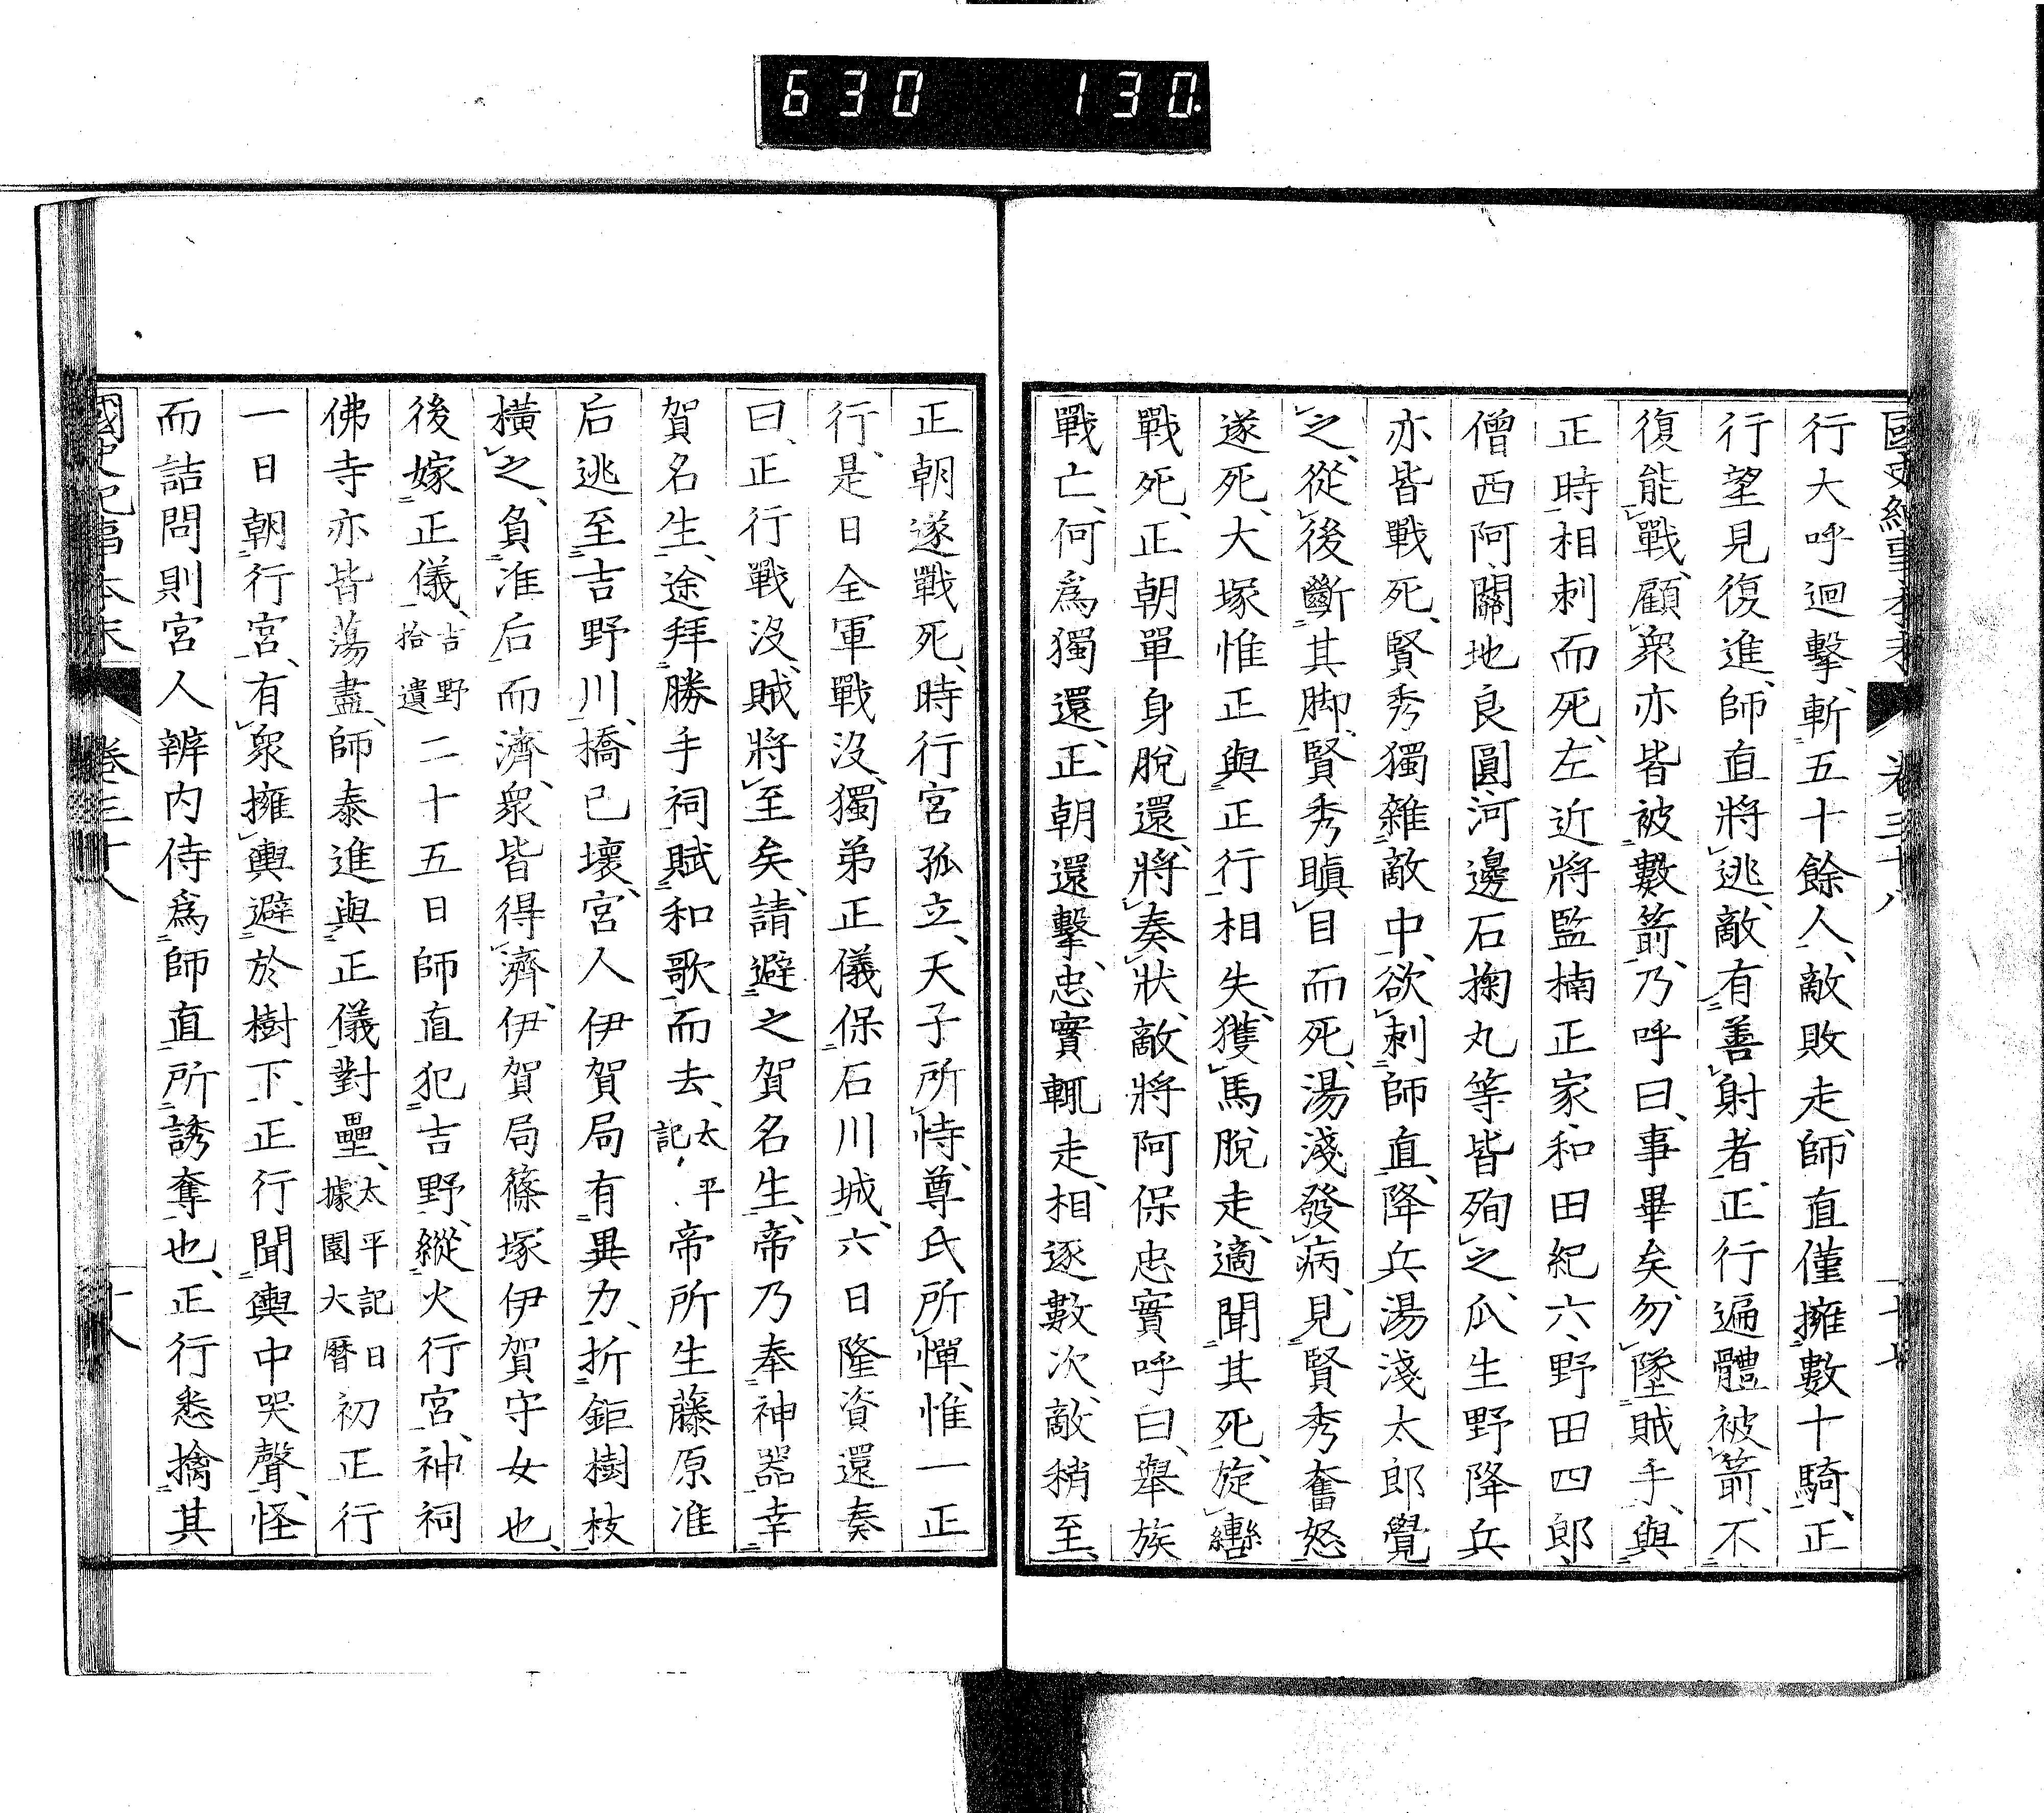 630 130.
國史紀事本末 卷三十八 十七
行大呼迴擊、斬五十餘人、敵敗走、師直僅擁數十騎、正
行望見復進、師直將逃、敵有善射者、正行遍體被箭、不
復能戰、顧衆亦皆被數箭、乃呼曰、事畢矣、勿墜賊手、與
正時相刺而死、左近將監楠正家、和田紀六、野田四郎、
僧西阿、關地良圓、河邊石掬丸等皆殉之、瓜生野降兵
亦皆戰死、賢秀獨雜敵中、欲刺師直、降兵湯淺太郎覺
之、從後斷其脚、賢秀瞋目而死、湯淺發病、見賢秀奮怒
遂死、大塚惟正與正行相失、獲馬脫走、適聞其死、旋轡
戰死、正朝單身脫還、將奏狀、敵將阿保忠實呼曰、舉族
戰亡、何爲獨還、正朝還擊、忠實輒走、相逐數次、敵稍至、
正朝遂戰死、時行宮孤立、天子所恃、尊氏所憚、惟一正
行、是日全軍戰沒、獨弟正儀保石川城、六日隆資還奏
曰、正行戰沒、賊將至矣、請避之賀名生、帝乃奉神器幸
賀名生、途拜勝手祠賦和歌而去、太平記、帝所生藤原准
后逃至吉野川、橋已壞、宮人伊賀局有異力、折鉅樹枝
橫之、負准后而濟、衆皆得濟、伊賀局篠塚伊賀守女也、
後嫁正儀、吉野拾遺二十五日師直犯吉野、縱火行宮、神祠
佛寺亦皆蕩盡、師泰進與正儀對壘、太平記日據園大曆初正行
一日朝行宮、有衆擁輿避於樹下、正行聞輿中哭聲、怪
而詰問則宮人辨内侍爲師直所誘奪也、正行悉擒其
國史紀事本末 卷三十八 十八